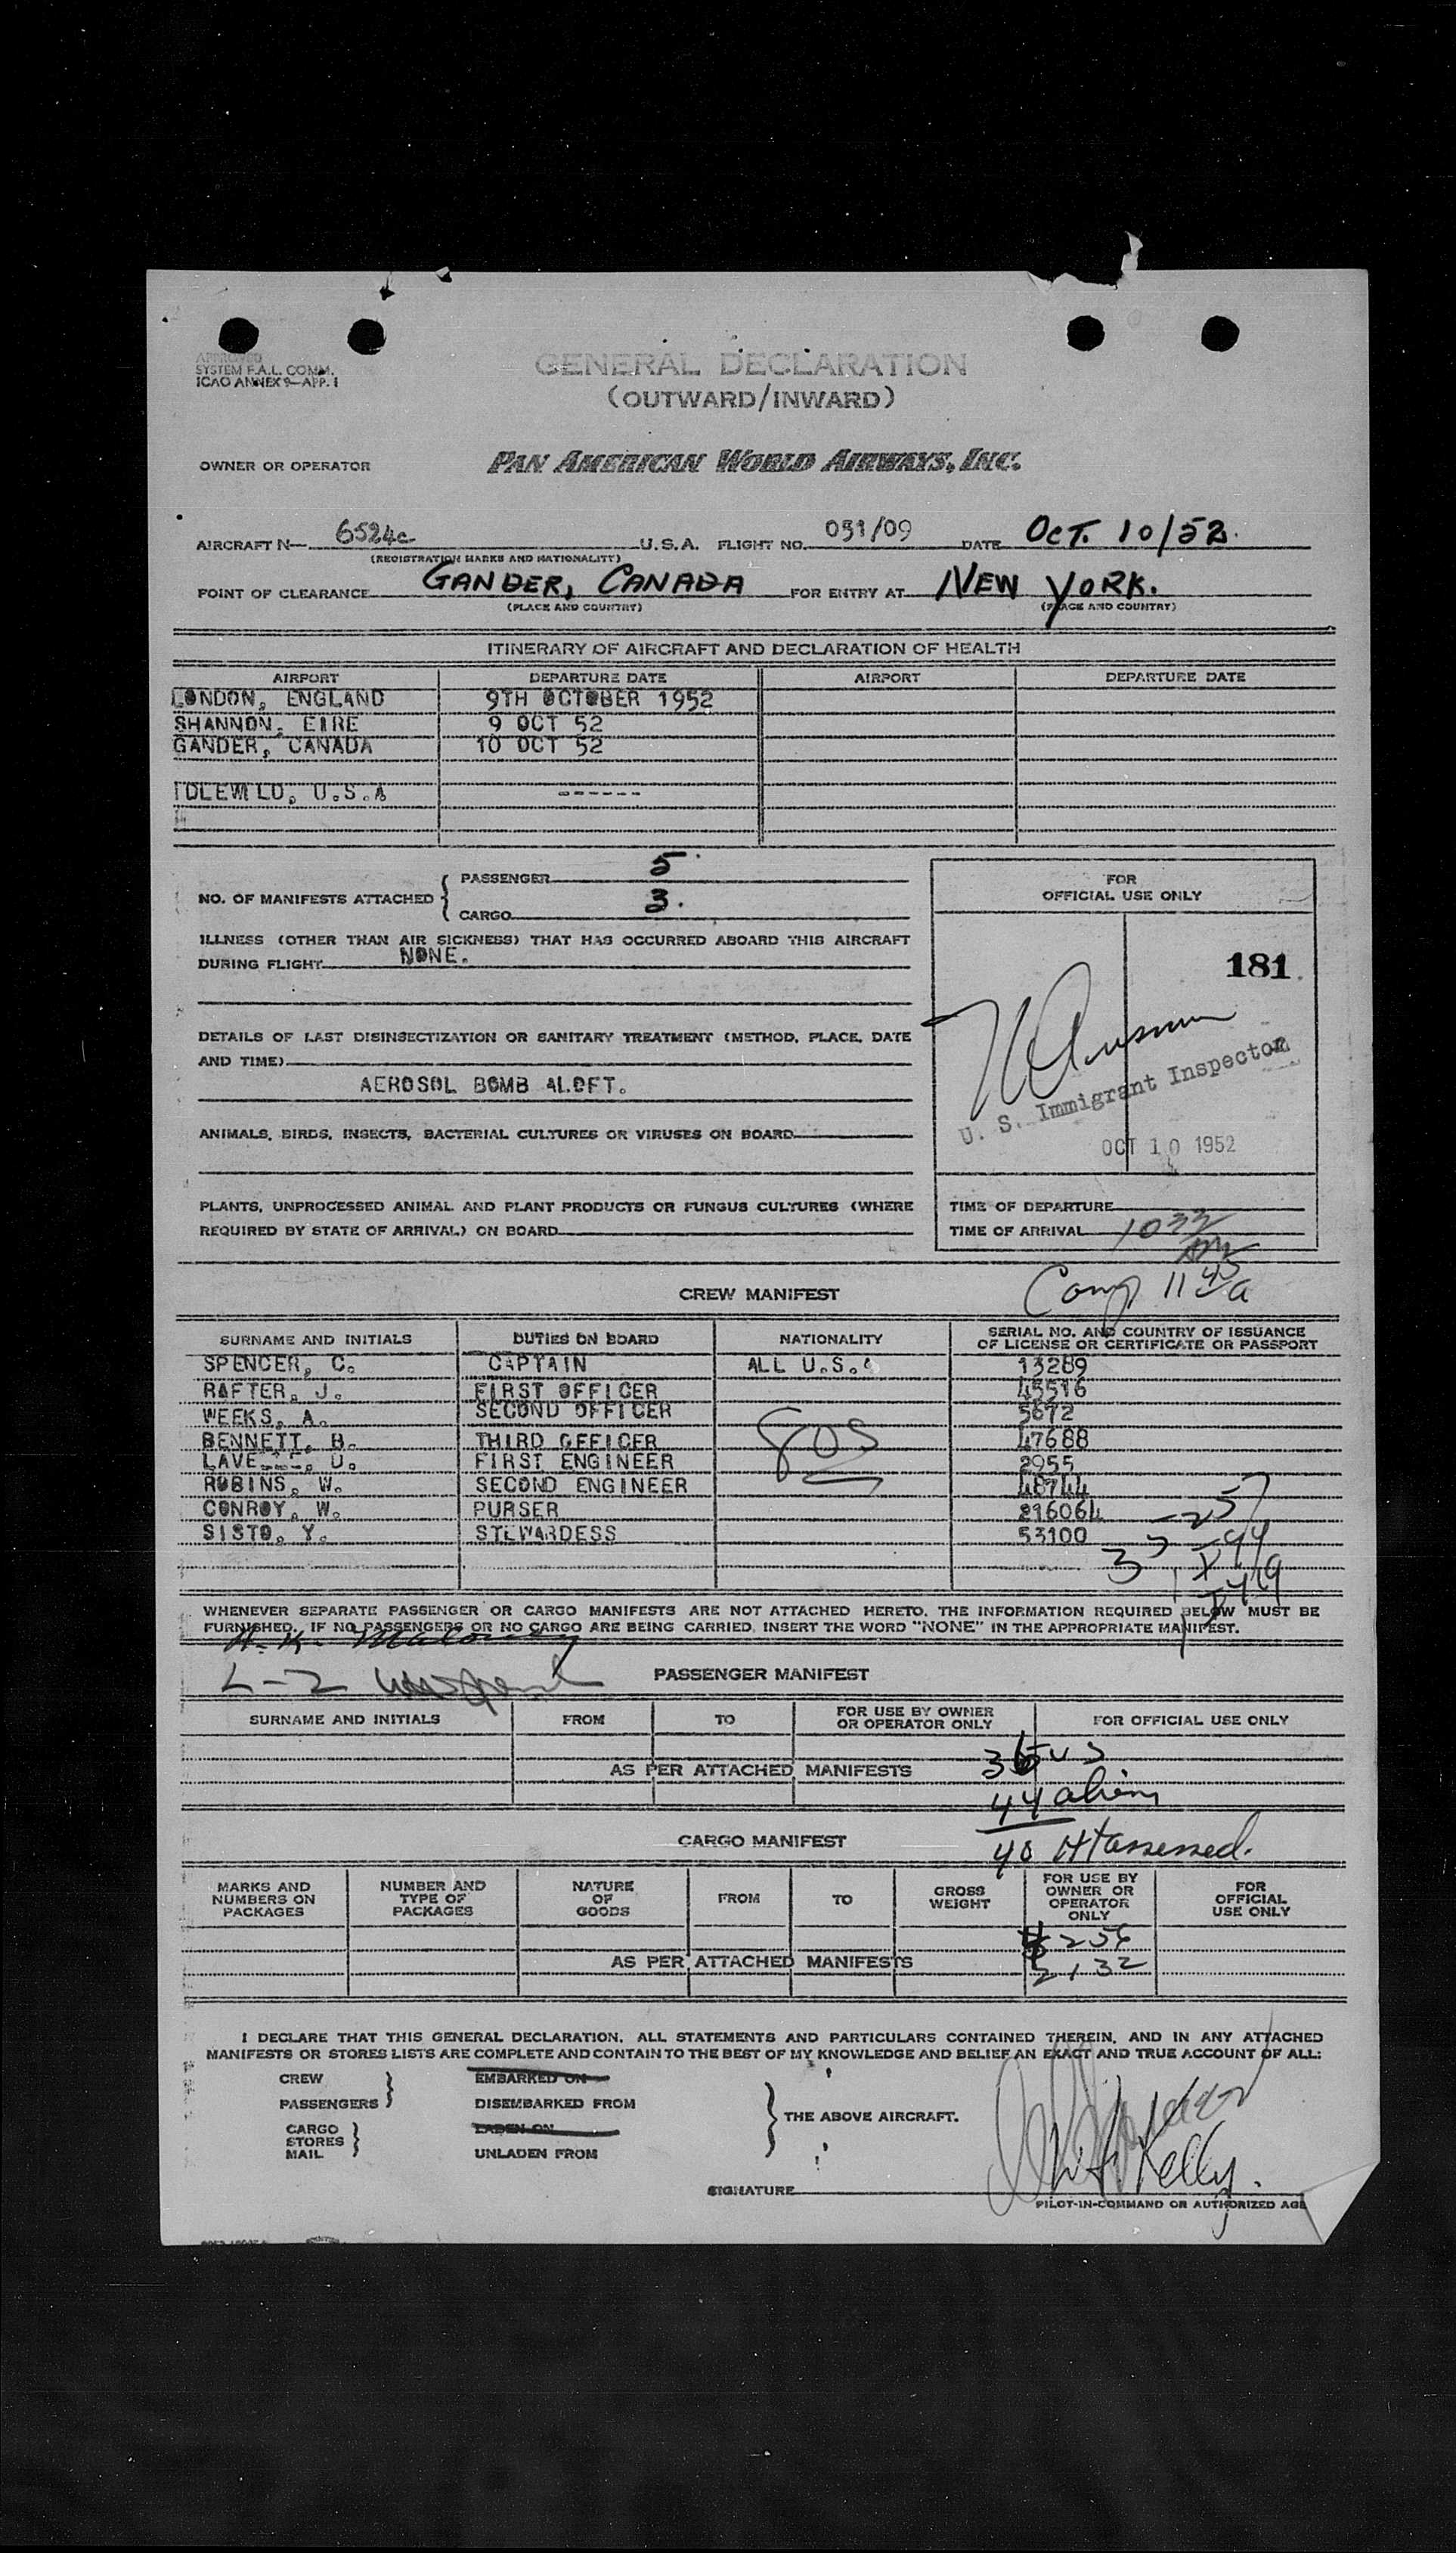 APPROVED
SYSTEM F.A.L. COMM.
ICAO ANNEX 9—APP. I
GENERAL DECLARATION
(OUTWARD/INWARD)
OWNER OR OPERATOR PAN AMERICAN WORLD AIRWAYS, INC.
AIRCRAFT N— 6524c U.S.A. FLIGHT NO. 051/09 DATE OCT. 10/52.
(REGISTRATION MARKS AND NATIONALITY)
POINT OF CLEARANCE GANDER, CANADA FOR ENTRY AT NEW YORK.
(PLACE AND COUNTRY) (PLACE AND COUNTRY)
ITINERARY OF AIRCRAFT AND DECLARATION OF HEALTH
AIRPORT DEPARTURE DATE AIRPORT DEPARTURE DATE
LONDON, ENGLAND 9TH OCTOBER 1952
SHANNON, EIRE 9 OCT 52
GANDER, CANADA 10 OCT 52
IDLEWILD, U.S.A ------
NO. OF MANIFESTS ATTACHED
PASSENGER 5
CARGO 3.
ILLNESS (OTHER THAN AIR SICKNESS) THAT HAS OCCURRED ABOARD THIS AIRCRAFT
DURING FLIGHT NONE.
DETAILS OF LAST DISINSECTIZATION OR SANITARY TREATMENT (METHOD, PLACE, DATE
AND TIME)
AEROSOL BOMB ALOFT.
ANIMALS, BIRDS, INSECTS, BACTERIAL CULTURES OR VIRUSES ON BOARD
PLANTS, UNPROCESSED ANIMAL AND PLANT PRODUCTS OR FUNGUS CULTURES (WHERE
REQUIRED BY STATE OF ARRIVAL) ON BOARD
FOR
OFFICIAL USE ONLY
181
U. S. Immigrant Inspector
OCT 10 1952
TIME OF DEPARTURE
TIME OF ARRIVAL 1033
AM
Comp 11 45 a
CREW MANIFEST
SURNAME AND INITIALS DUTIES ON BOARD NATIONALITY SERIAL NO. AND COUNTRY OF ISSUANCE
OF LICENSE OR CERTIFICATE OR PASSPORT
SPENCER, C. CAPTAIN ALL U.S. 13289
RAFTER, J. FIRST OFFICER 45516
WEEKS, A. SECOND OFFICER 5672
BENNETT, B. THIRD OFFICER 47688
FIRST ENGINEER 2955
ROBINS, W. SECOND ENGINEER 48744
CONROY, W. PURSER 216064
SISTO, Y. STEWARDESS 53100
WHENEVER SEPARATE PASSENGER OR CARGO MANIFESTS ARE NOT ATTACHED HERETO, THE INFORMATION REQUIRED BELOW MUST BE
FURNISHED. IF NO PASSENGERS OR NO CARGO ARE BEING CARRIED, INSERT THE WORD "NONE" IN THE APPROPRIATE MANIFEST.
H. K. Maloney
L-2
PASSENGER MANIFEST
SURNAME AND INITIALS FROM TO FOR USE BY OWNER
OR OPERATOR ONLY FOR OFFICIAL USE ONLY
AS PER ATTACHED MANIFESTS
44 alien
CARGO MANIFEST
40 Ht assessed.
MARKS AND
NUMBERS ON
PACKAGES NUMBER AND
TYPE OF
PACKAGES NATURE
OF
GOODS FROM TO GROSS
WEIGHT FOR USE BY
OWNER OR
OPERATOR
ONLY FOR
OFFICIAL
USE ONLY
AS PER ATTACHED MANIFESTS
2132
I DECLARE THAT THIS GENERAL DECLARATION, ALL STATEMENTS AND PARTICULARS CONTAINED THEREIN, AND IN ANY ATTACHED
MANIFESTS OR STORES LISTS ARE COMPLETE AND CONTAIN TO THE BEST OF MY KNOWLEDGE AND BELIEF AN EXACT AND TRUE ACCOUNT OF ALL:
CREW EMBARKED ON
PASSENGERS DISEMBARKED FROM
THE ABOVE AIRCRAFT.
CARGO LADEN ON
STORES
MAIL UNLADEN FROM
SIGNATURE Kelly.
PILOT-IN-COMMAND OR AUTHORIZED AGE